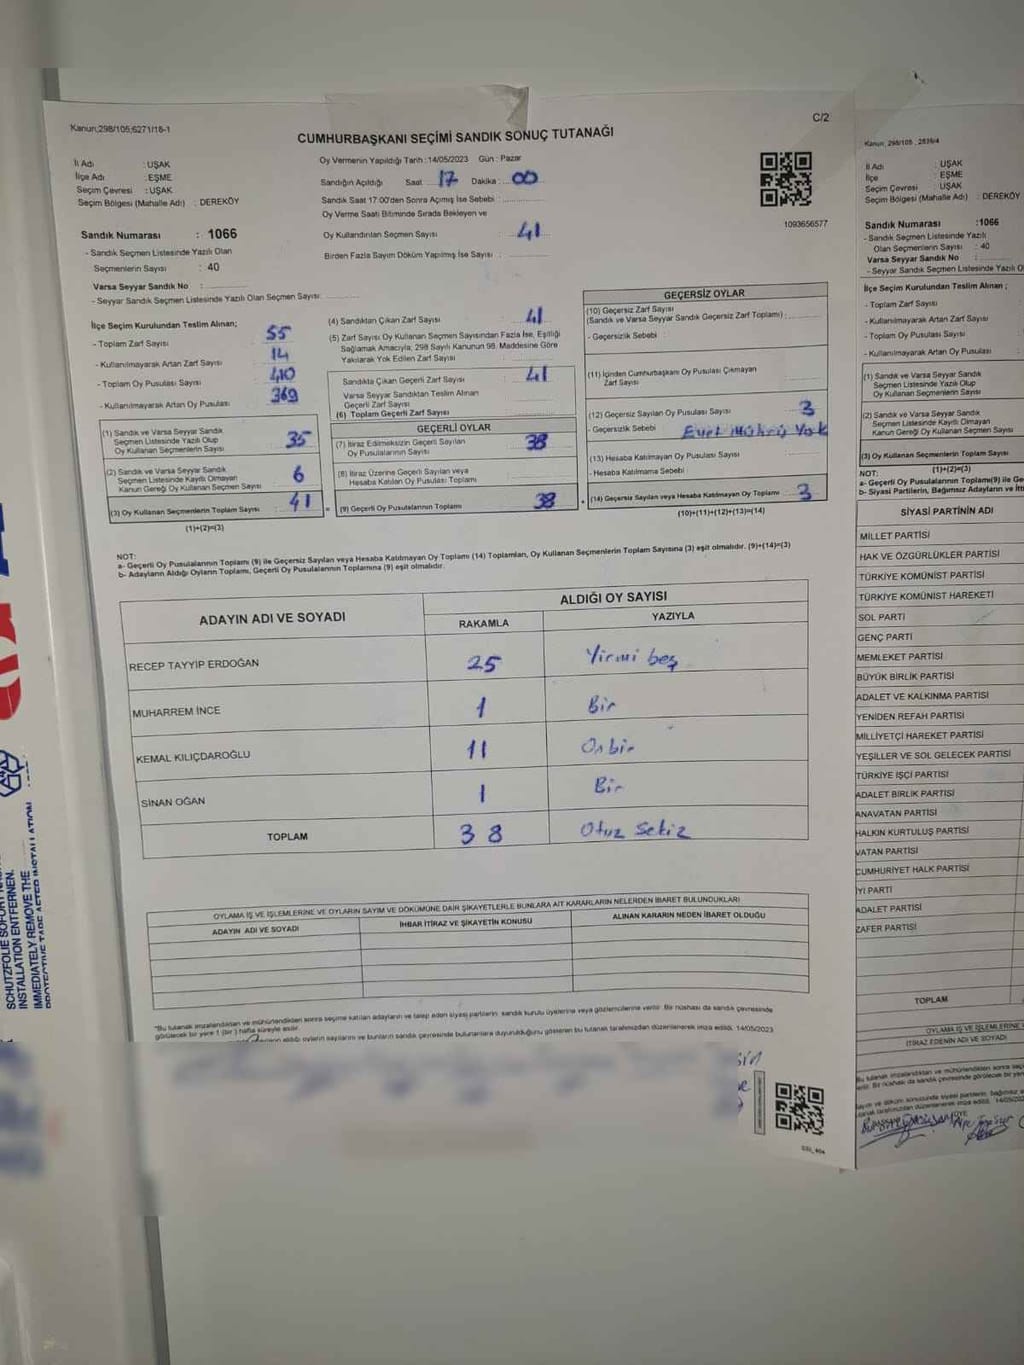 Kanun;298/105;6271/18-1
C/2
CUMHURBAŞKANI SEÇİMİ SANDIK SONUÇ TUTANAĞI
İl Adı : UŞAK
İlçe Adı : EŞME
Seçim Çevresi : UŞAK
Seçim Bölgesi (Mahalle Adı) : DEREKÖY
Sandık Numarası : 1066
- Sandık Seçmen Listesinde Yazılı Olan
Seçmenlerin Sayısı : 40
Varsa Seyyar Sandık No :
- Seyyar Sandık Listesinde Yazılı Olan Seçmen Sayısı:
Oy Vermenin Yapıldığı Tarih :14/05/2023 Gün : Pazar
Sandığın Açıldığı Saat 17 Dakika : 00
Sandık Saat 17:00'den Sonra Açılmış İse Sebebi :
Oy Verme Saati Bitiminde Sırada Bekleyen ve
Oy Kullandırılan Seçmen Sayısı : 41
Birden Fazla Sayım Döküm Yapılmış İse Sayısı :
1093656577
İlçe Seçim Kurulundan Teslim Alınan;
- Toplam Zarf Sayısı 55
- Kullanılmayarak Artan Zarf Sayısı 14
- Toplam Oy Pusulası Sayısı 410
- Kullanılmayarak Artan Oy Pusulası 369
(1) Sandık ve Varsa Seyyar Sandık
Seçmen Listesinde Yazılı Olup
Oy Kullanan Seçmenlerin Sayısı 35
(2) Sandık ve Varsa Seyyar Sandık
Seçmen Listesinde Kayıtlı Olmayan
Kanun Gereği Oy Kullanan Seçmen Sayısı 6
(3) Oy Kullanan Seçmenlerin Toplam Sayısı 41
(1)+(2)=(3)
(4) Sandıktan Çıkan Zarf Sayısı 41
(5) Zarf Sayısı Oy Kullanan Seçmen Sayısından Fazla İse, Eşitliği
Sağlamak Amacıyla, 298 Sayılı Kanunun 98. Maddesine Göre
Yakılarak Yok Edilen Zarf Sayısı
Sandıkta Çıkan Geçerli Zarf Sayısı 41
Varsa Seyyar Sandıktan Teslim Alınan
Geçerli Zarf Sayısı
(6) Toplam Geçerli Zarf Sayısı
GEÇERLİ OYLAR
(7) İtiraz Edilmeksizin Geçerli Sayılan
Oy Pusulalarının Sayısı 38
(8) İtiraz Üzerine Geçerli Sayılan veya
Hesaba Katılan Oy Pusulası Toplamı
(9) Geçerli Oy Pusulalarının Toplamı 38
GEÇERSİZ OYLAR
(10) Geçersiz Zarf Sayısı
(Sandık ve Varsa Seyyar Sandık Geçersiz Zarf Toplamı) :
- Geçersizlik Sebebi :
(11) İçinden Cumhurbaşkanı Oy Pusulası Çıkmayan
Zarf Sayısı
(12) Geçersiz Sayılan Oy Pusulası Sayısı 3
- Geçersizlik Sebebi : Evet Mührü Yok
(13) Hesaba Katılmayan Oy Pusulası Sayısı
- Hesaba Katılmama Sebebi :
(14) Geçersiz Sayılan veya Hesaba Katılmayan Oy Toplamı 3
(10)+(11)+(12)+(13)=(14)
NOT:
a- Geçerli Oy Pusulalarının Toplamı (9) ile Geçersiz Sayılan veya Hesaba Katılmayan Oy Toplamı (14) Toplamları, Oy Kullanan Seçmenlerin Toplam Sayısına (3) eşit olmalıdır. (9)+(14)=(3)
b- Adayların Aldığı Oyların Toplamı, Geçerli Oy Pusulalarının Toplamına (9) eşit olmalıdır.
ADAYIN ADI VE SOYADI
ALDIĞI OY SAYISI
RAKAMLA YAZIYLA
RECEP TAYYİP ERDOĞAN 25 Yirmi beş
MUHARREM İNCE 1 Bir
KEMAL KILIÇDAROĞLU 11 Onbir
SİNAN OĞAN 1 Bir
TOPLAM 38 Otuz Sekiz
OYLAMA İŞ VE İŞLEMLERİNE VE OYLARIN SAYIM VE DÖKÜMÜNE DAİR ŞİKAYETLERLE BUNLARA AİT KARARLARIN NELERDEN İBARET BULUNDUKLARI
ADAYIN ADI VE SOYADI İHBAR İTİRAZ VE ŞİKAYETİN KONUSU ALINAN KARARIN NEDEN İBARET OLDUĞU
*Bu tutanak imzalandıktan ve mühürlendikten sonra seçime katılan adayların ve talep eden siyasi partilerin, sandık kurulu üyelerine veya gözlemcilerine verilir. Bir nüshası da sandık çevresinde
görülecek bir yere 1 (bir) hafta süreyle asılır.
aldığı oyların sayılarını ve bunların sandık çevresinde bulunanlara duyurulduğunu gösteren bu tutanak tarafımızdan düzenlenerek imza edildi. 14/05/2023
Kanun; 298/105 , 2839/4
İl Adı : UŞAK
İlçe : EŞME
Seçim Çevresi : UŞAK
Seçim Bölgesi (Mahalle Adı) : DEREKÖY
Sandık Numarası :1066
- Sandık Seçmen Listesinde Yazılı
Olan Seçmenlerin Sayısı : 40
Varsa Seyyar Sandık No :
- Seyyar Sandık Listesinde Yazılı O
İlçe Seçim Kurulundan Teslim Alınan ;
- Toplam Zarf Sayısı
- Kullanılmayarak Artan Zarf Sayısı
- Toplam Oy Pusulası Sayısı
- Kullanılmayarak Artan Oy Pusulası
(1) Sandık ve Varsa Seyyar Sandık
Seçmen Listesinde Yazılı Olup
Oy Kullanan Seçmenlerin Sayısı
(2) Sandık ve Varsa Seyyar Sandık
Seçmen Listesinde Kayıtlı Olmayan
Kanun Gereği Oy Kullanan Seçmen Sayısı
(3) Oy Kullanan Seçmenlerin Toplam Sayısı
(1)+(2)=(3)
NOT:
a- Geçerli Oy Pusulalarının Toplamı(9) ile Ge
b- Siyasi Partilerin, Bağımsız Adayların ve İtt
SİYASİ PARTİNİN ADI
MİLLET PARTİSİ
HAK VE ÖZGÜRLÜKLER PARTİSİ
TÜRKİYE KOMÜNİST PARTİSİ
TÜRKİYE KOMÜNİST HAREKETİ
SOL PARTİ
GENÇ PARTİ
MEMLEKET PARTİSİ
BÜYÜK BİRLİK PARTİSİ
ADALET VE KALKINMA PARTİSİ
YENİDEN REFAH PARTİSİ
MİLLİYETÇİ HAREKET PARTİSİ
YEŞİLLER VE SOL GELECEK PARTİSİ
TÜRKİYE İŞÇİ PARTİSİ
ADALET BİRLİK PARTİSİ
ANAVATAN PARTİSİ
HALKIN KURTULUŞ PARTİSİ
VATAN PARTİSİ
CUMHURİYET HALK PARTİSİ
İYİ PARTİ
ADALET PARTİSİ
ZAFER PARTİSİ
TOPLAM
OYLAMA İŞ VE İŞLEMLERİNE
İTİRAZ EDENİN ADI VE SOYADI
SCHUTZFOLIE SOFORT NACH
INSTALLATION ENTFERNEN.
IMMEDIATELY REMOVE THE
PROTECTIVE TAPE AFTER INSTALLATION